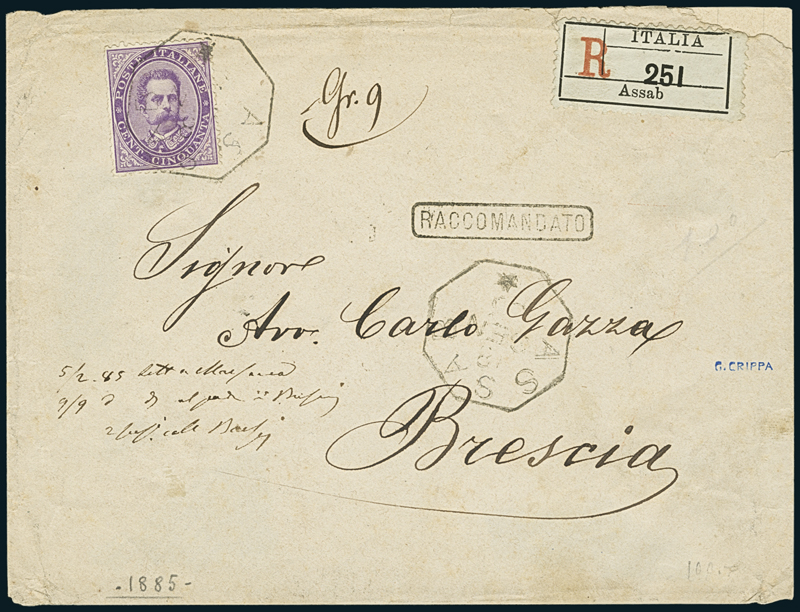 POSTE ITALIANE
CENT. CINQUANTA
Gr. 9
ITALIA
R 251
Assab
RACCOMANDATO
Signore
Avv. Carlo Gazza
Brescia
ASSAB
G. CRIPPA
5/2.85
9/9
.1885-